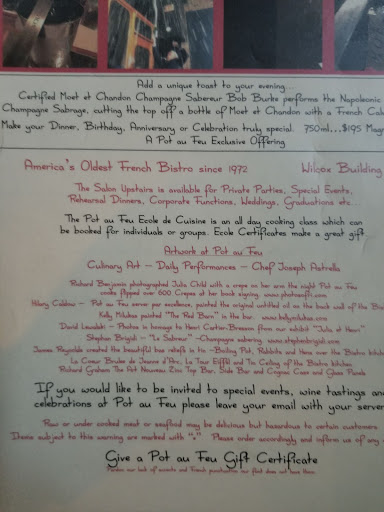 Add a unique toast to your evening...
Certified Moet et Chandon Champagne Sabereur Bob Burke performs the Napoleonic
Champagne Sabrage, cutting the top off a bottle of Moet et Chandon with a French
Make your Dinner, Birthday, Anniversary or Celebration truly special. 750ml...$195
A Pot au Feu Exclusive Offering
America's Oldest French Bistro since 1972 Wilcox Building
The Salon Upstairs is available for Private Parties, Special Events,
Rehearsal Dinners, Corporate Functions, Weddings, Graduations etc...
The Pot au Feu Ecole de Cuisine is an all day cooking class which can
be booked for individuals or groups. Ecole Certificates make a great gift.
Artwork at Pot au Feu
Culinary Art - Daily Performances - Chef Joseph
Richard Benjamin photographed Julia Child with a crepe on her arm the night Pot au Feu
flipped over 600 Crepes at her book signing.
Pot au Feu server par excellence, painted the original untitled oil on the back wall of the
Kelly Milukas painted "The Red Barn" in the bar. www.kellymilukas.com
David Photos in homage to Henri Cartier-Bresson from our exhibit "Julia et Henri"
Stephen Brigidi - "Le Sabreur" -Champagne sabering. www.stephenbrigidi.com
James Reynolds created the beautiful bas reliefs in the Bistro
La Coeur Brulee de Jeanne d'Arc, La Tour Eiffel and The Ceiling of the Bistro kitchen
Richard Graham The Art Nouveau Zinc Top Bar, Side Bar and Cognac Caps and Glass Panels
If you would like to be invited to special events, wine tastings and
celebrations at Pot au Feu please leave your email with your server
Raw or under cooked meat or seafood may be delicious but hazardous to certain customers
Items subject to this warning are marked with "*" Please order accordingly and inform us of any
Give a Pot au Feu Gift Certificate
Pardon our lack of accents and French punctuation our font does not have them